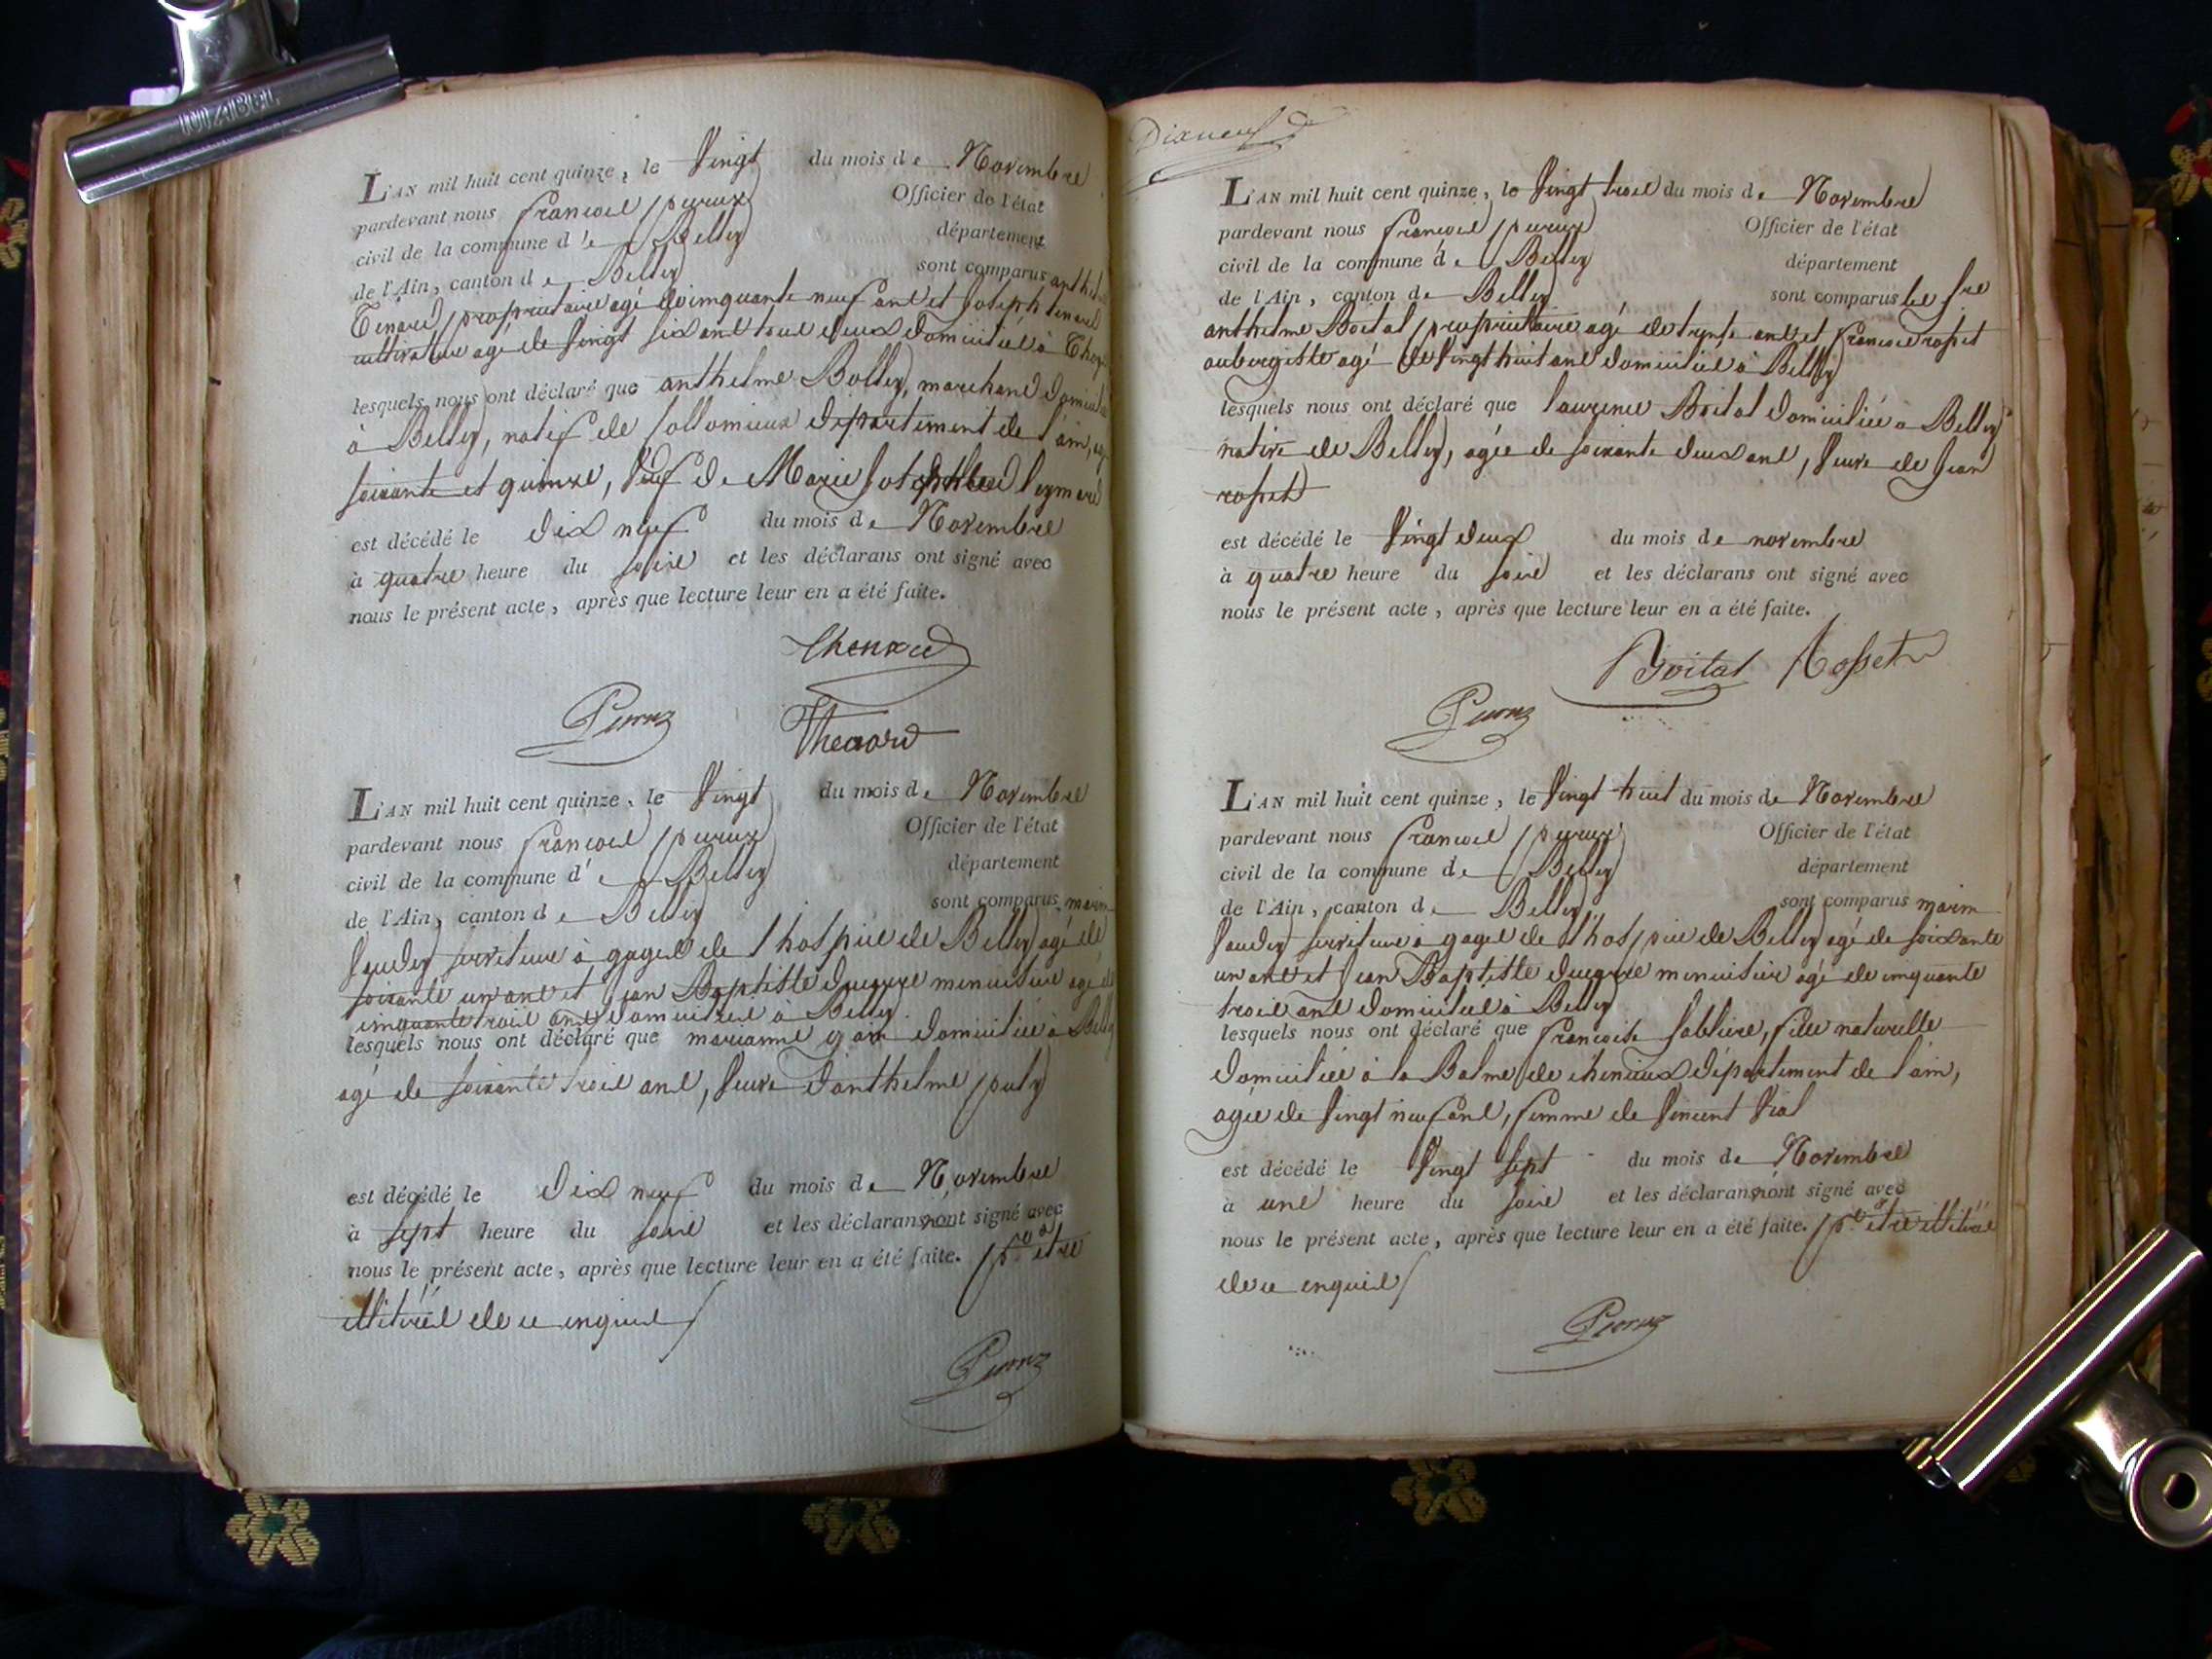 L'AN mil huit cent quinze, le Vingt du mois de Novembre
pardevant nous francois peroux Officier de l'état
civil de la commune de Belley département
de l'Ain, canton de Belley sont comparus anthelme
Tenard propriétaire agé de cinquante neuf ans et Joseph tenard
cultivateur agé de Vingt six ans tous deux domiciliés à
lesquels nous ont déclaré que anthelme Bolley, marchand domicilié
à Belley, natif de Collomieux département de l'ain, agé
soixante et quinze, Veuf de Marie Josephte
est décédé le dix neuf du mois de Novembre
à quatre heure du soire et les déclarans ont signé avec
nous le présent acte, après que lecture leur en a été faite.
Thenard
Peroux
Thenard
L'AN mil huit cent quinze, le Vingt du mois de Novembre
pardevant nous francois peroux Officier de l'état
civil de la commune de Belley département
de l'Ain, canton de Belley sont comparus marin
serviteur à gages de l'hospice de Belley agé de
soixante un ans et Jean Baptiste menuisier agé de
cinquante trois ans domiciliés à Belley
lesquels nous ont déclaré que marianne domiciliée à Belley
agé de soixante trois ans, Veuve d'anthelme
est décédé le dix neuf du mois de Novembre
à sept heure du soire et les déclarans n'ont signé avec
nous le présent acte, après que lecture leur en a été faite. pr être
illitérés de ce enquis
Peroux
Dixneuf
L'AN mil huit cent quinze, le Vingt trois du mois de Novembre
pardevant nous francois peroux Officier de l'état
civil de la commune de Belley département
de l'Ain, canton de Belley sont comparus le sre
anthelme Boital propriétaire agé de trente ans et francois rosset
aubergiste agé de Vingt huit ans domiciliés à Belley
lesquels nous ont déclaré que laurence Boital domiciliée à Belley
native de Belley, agée de soixante deux ans, Veuve de Jean
rosset
est décédé le Vingt deux du mois de novembre
à quatre heure du soire et les déclarans ont signé avec
nous le présent acte, après que lecture leur en a été faite.
Boital Rosset
Peroux
L'AN mil huit cent quinze, le Vingt huit du mois de Novembre
pardevant nous francois peroux Officier de l'état
civil de la commune de Belley département
de l'Ain, canton de Belley sont comparus marin
serviteur à gages de l'hospice de Belley agé de soixante
un ans et Jean Baptiste menuisier agé de cinquante
trois ans domiciliés à Belley
lesquels nous ont déclaré que francoise Sabliere, fille naturelle
domiciliée à la Balme de département de l'ain,
agée de Vingt neuf ans, femme de Vincent Vial
est décédé le Vingt sept du mois de Novembre
à une heure du soire et les déclarans n'ont signé avec
nous le présent acte, après que lecture leur en a été faite. pr être illitérés
de ce enquis
Peroux